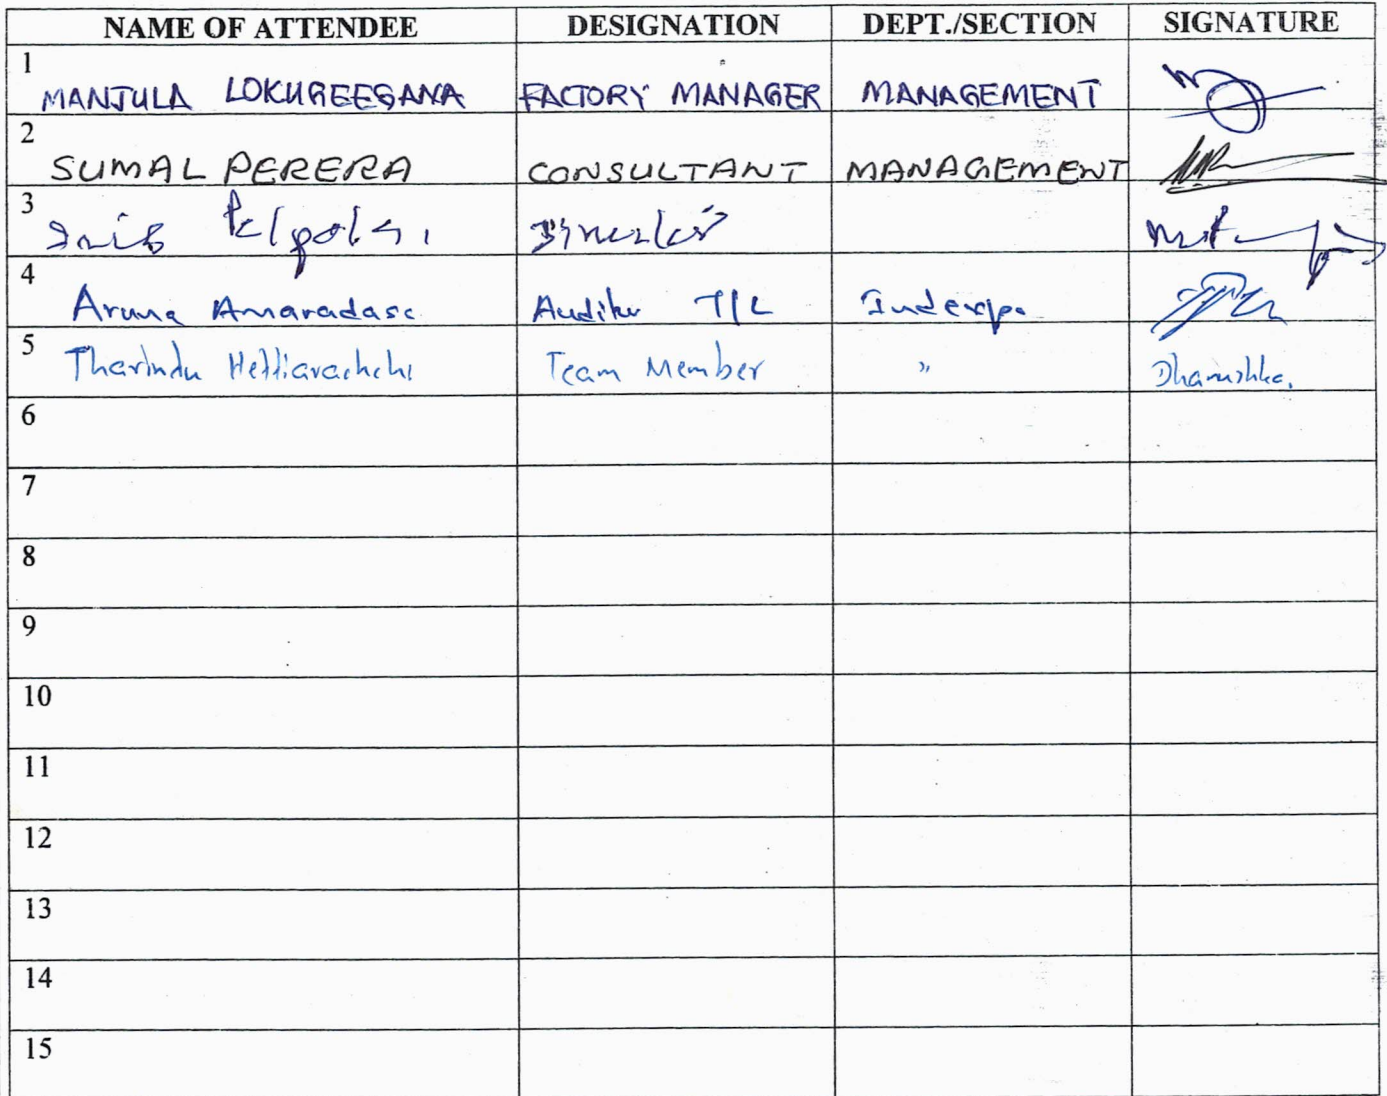 NAME OF ATTENDEE DESIGNATION DEPT./SECTION SIGNATURE
1
MANJULA LOKUGEEGANA FACTORY MANAGER MANAGEMENT
2
SUMAL PERERA CONSULTANT MANAGEMENT
3
4
Aruna Amaradasa Auditor T/L
5
Tharindu Hettiarachchi Team Member " Dhanushka.
6
7
8
9
10
11
12
13
14
15